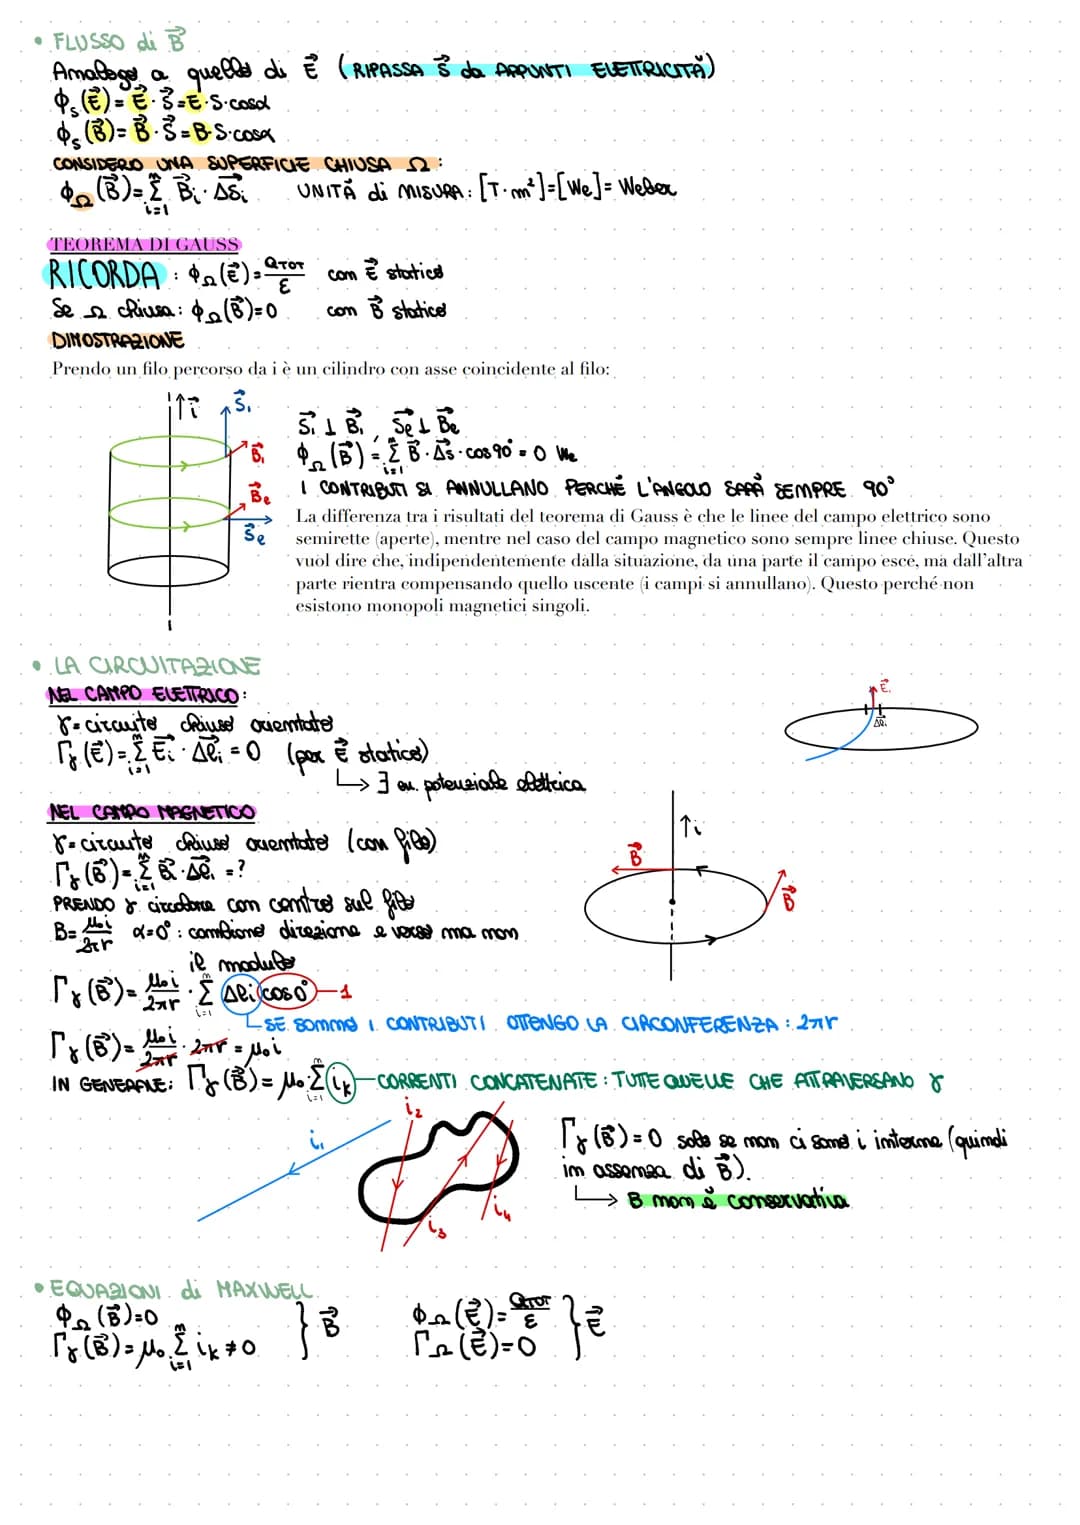 • FLUSSO di B⃗
Analogo a quello di E⃗ (RIPASSA S⃗ da APPUNTI ELETTRICITÀ)
Φₛ(E⃗) = E⃗ · S⃗ = E·S·cosα
Φₛ(B⃗) = B⃗ · S⃗ = B·S·cosα
CONSIDERO UNA SUPERFICIE CHIUSA Ω:
Φ_Ω(B⃗) = Σⁿᵢ₌₁ B⃗ᵢ · ΔS⃗ᵢ UNITÀ di MISURA: [T·m²]=[We]= Weber
TEOREMA DI GAUSS
RICORDA : Φ_Ω(E⃗) = Q_TOT/ε con E⃗ statico
Se Ω chiusa: Φ_Ω(B⃗)=0 con B⃗ statico
DIMOSTRAZIONE
Prendo un filo percorso da i è un cilindro con asse coincidente al filo:
↑i⃗ S⃗₁
B⃗₁
B⃗e
S⃗e
S⃗₁ ⊥ B⃗₁, S⃗e ⊥ B⃗e
Φ_Ω(B⃗) = Σⁿᵢ₌₁ B⃗·ΔS⃗·cos90° = 0 We
I CONTRIBUTI SI ANNULLANO PERCHÉ L'ANGOLO SARÀ SEMPRE 90°
La differenza tra i risultati del teorema di Gauss è che le linee del campo elettrico sono
semirette (aperte), mentre nel caso del campo magnetico sono sempre linee chiuse. Questo
vuol dire che, indipendentemente dalla situazione, da una parte il campo esce, ma dall'altra
parte rientra compensando quello uscente (i campi si annullano). Questo perché non
esistono monopoli magnetici singoli.
• LA CIRCUITAZIONE
NEL CAMPO ELETTRICO:
γ=circuito chiuso orientato
Γγ(E⃗) = Σⁿᵢ₌₁ E⃗ᵢ · Δl⃗ᵢ = 0 (per E⃗ statico)
↳ ∃ en. potenziale elettrica
E⃗
Δl⃗ᵢ
NEL CAMPO MAGNETICO
γ=circuito chiuso orientato (con filo)
Γγ(B⃗) = Σⁿᵢ₌₁ B⃗ᵢ·Δl⃗ᵢ = ?
PRENDO γ circolare con centro sul filo
B = μ₀i/2πr α=0° : cambiano direzione e verso ma non
il modulo
↑i
B⃗
B⃗
Γγ(B⃗) = μ₀i/2πr · Σⁿᵢ₌₁ Δlᵢ cos0° – 1
SE SOMMO I CONTRIBUTI OTTENGO LA CIRCONFERENZA : 2πr
Γγ(B⃗) = μ₀i/2πr · 2πr = μ₀i
IN GENERALE: Γγ(B⃗) = μ₀ Σⁿᵢ₌₁ iₖ – CORRENTI CONCATENATE : TUTTE QUELLE CHE ATTRAVERSANO γ
i₁
i₂
i₃
i₄
Γγ(B⃗) = 0 solo se non ci sono i interne (quindi
in assenza di B⃗).
↳ B non è conservativa
• EQUAZIONI di MAXWELL
Φ_Ω(B⃗)=0 Φ_Ω(E⃗) = Q_TOT/ε
} B⃗ } E⃗
Γγ(B⃗) = μ₀ Σⁿᵢ₌₁ iₖ ≠ 0 Γ_Ω(E⃗)=0